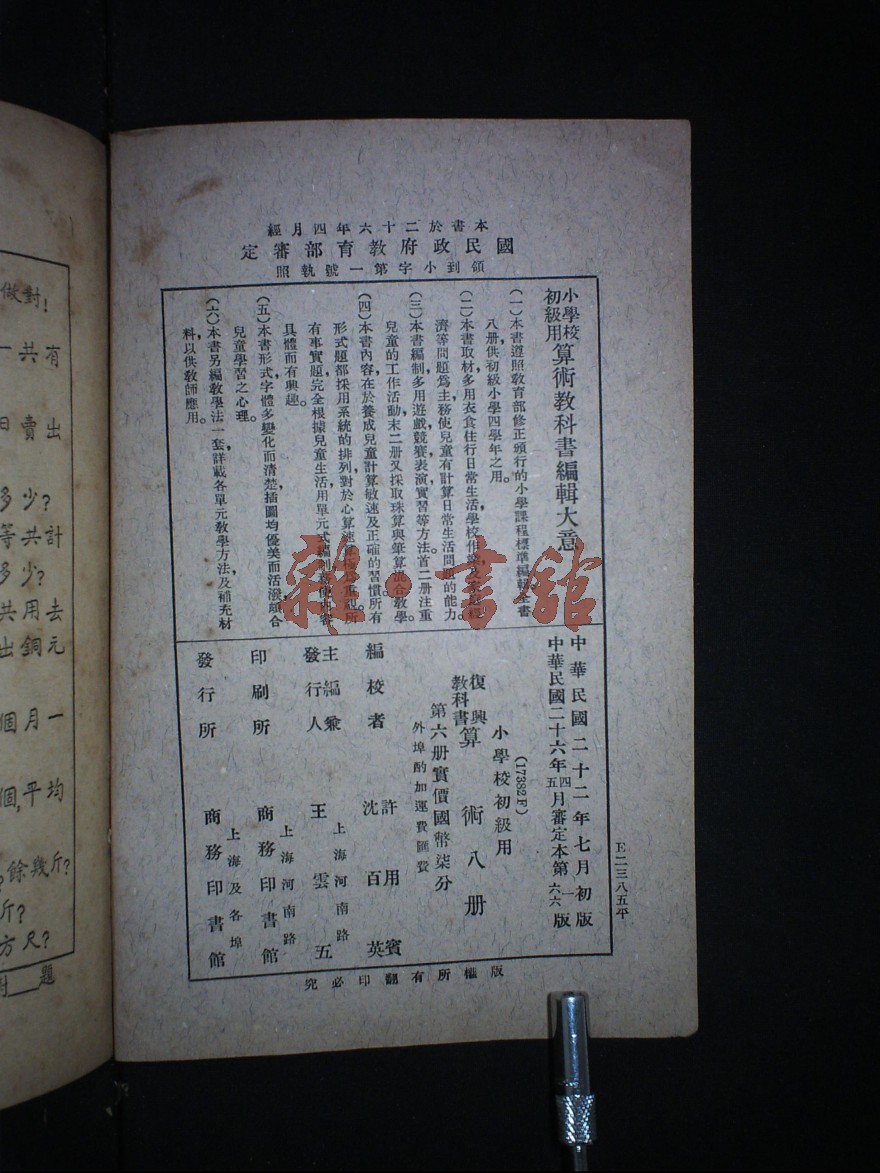 經月四年六十二於書本
定審部育教府政民國
照執號一第字小到領
小學校
初級用
算術教科書編輯大意
(一)本書遵照教育部修正頒行的小學課程標準編輯全書
八册,供初級小學四學年之用。
(二)本書取材多用衣食住行日常生活,學校作業及
濟等問題爲主,務使兒童有計算日常生活問題的能力。
(三)本書編制多用遊戲競賽表演實習等方法,首二册注重
兒童的工作活動,末二册又採取珠算與筆算混合教學。
(四)本書內容在於養成兒童計算敏速及正確的習慣。所有
形式題都採用系統的排列,對於心算速算極爲重視,所
有事實題完全根據兒童生活,用單元式編制,務使內容
具體而有興趣。
(五)本書形式字體多變化而清楚,插圖均優美而活潑,頗合
兒童學習之心理。
(六)本書另編教學法一套,詳載各單元教學方法及補充材
料,以供教師應用。
中華民國二十二年七月初版
中華民國二十六年四五月審定本第一六六版
E二三八五平
(17382F)
小學校初級用
復興教科書
算術八册
第六册實價國幣柒分
外埠酌加運費匯費
編校者 許用賓 沈百英
主編兼發行人 上海河南路 王雲五
印刷所 上海河南路 商務印書館
發行所 上海及各埠 商務印書館
究必印翻有所權版
雜·書館
做對!
一共有
日賣出
多少?
等共計
多少?
共用去
出銅元
個月一
個,平均
餘幾斤?
斤?
方尺?
對 題